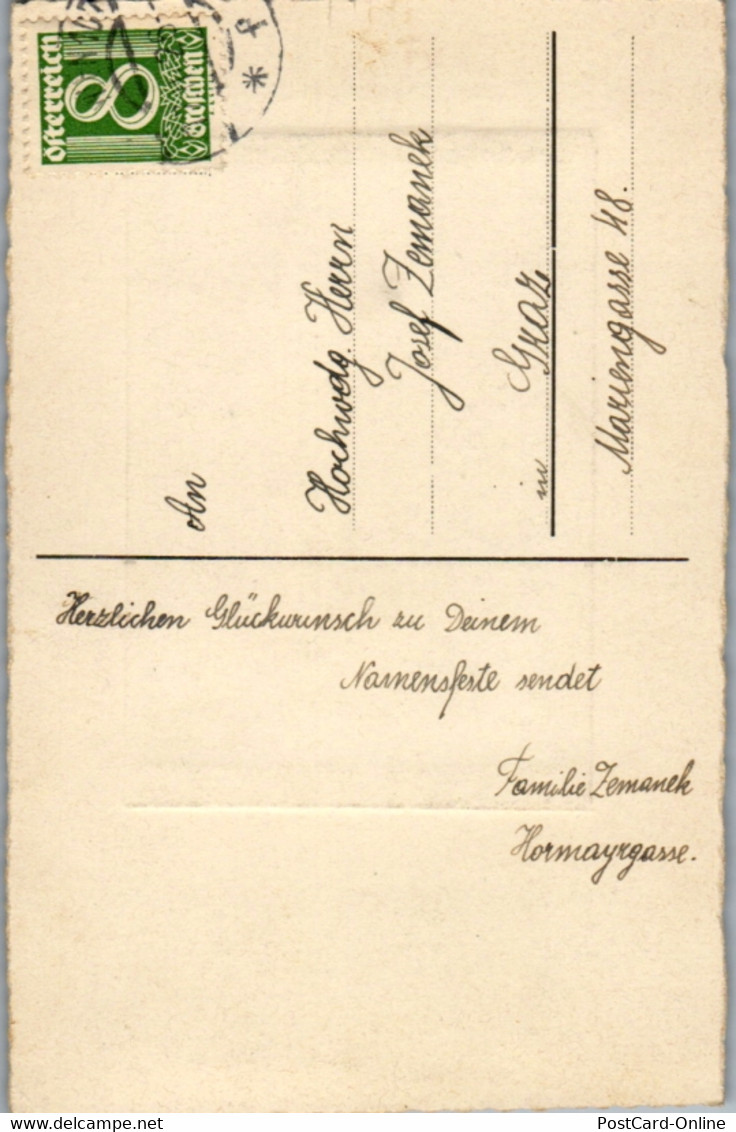 Österreich
8
Groschen
An
Hochwdg. Herrn
Josef Zemanek
in Graz
Mariengasse 48.
Herzlichen Glückwunsch zu Deinem
Namensfeste sendet
Familie Zemanek
Hormayrgasse.
PostCard-Online